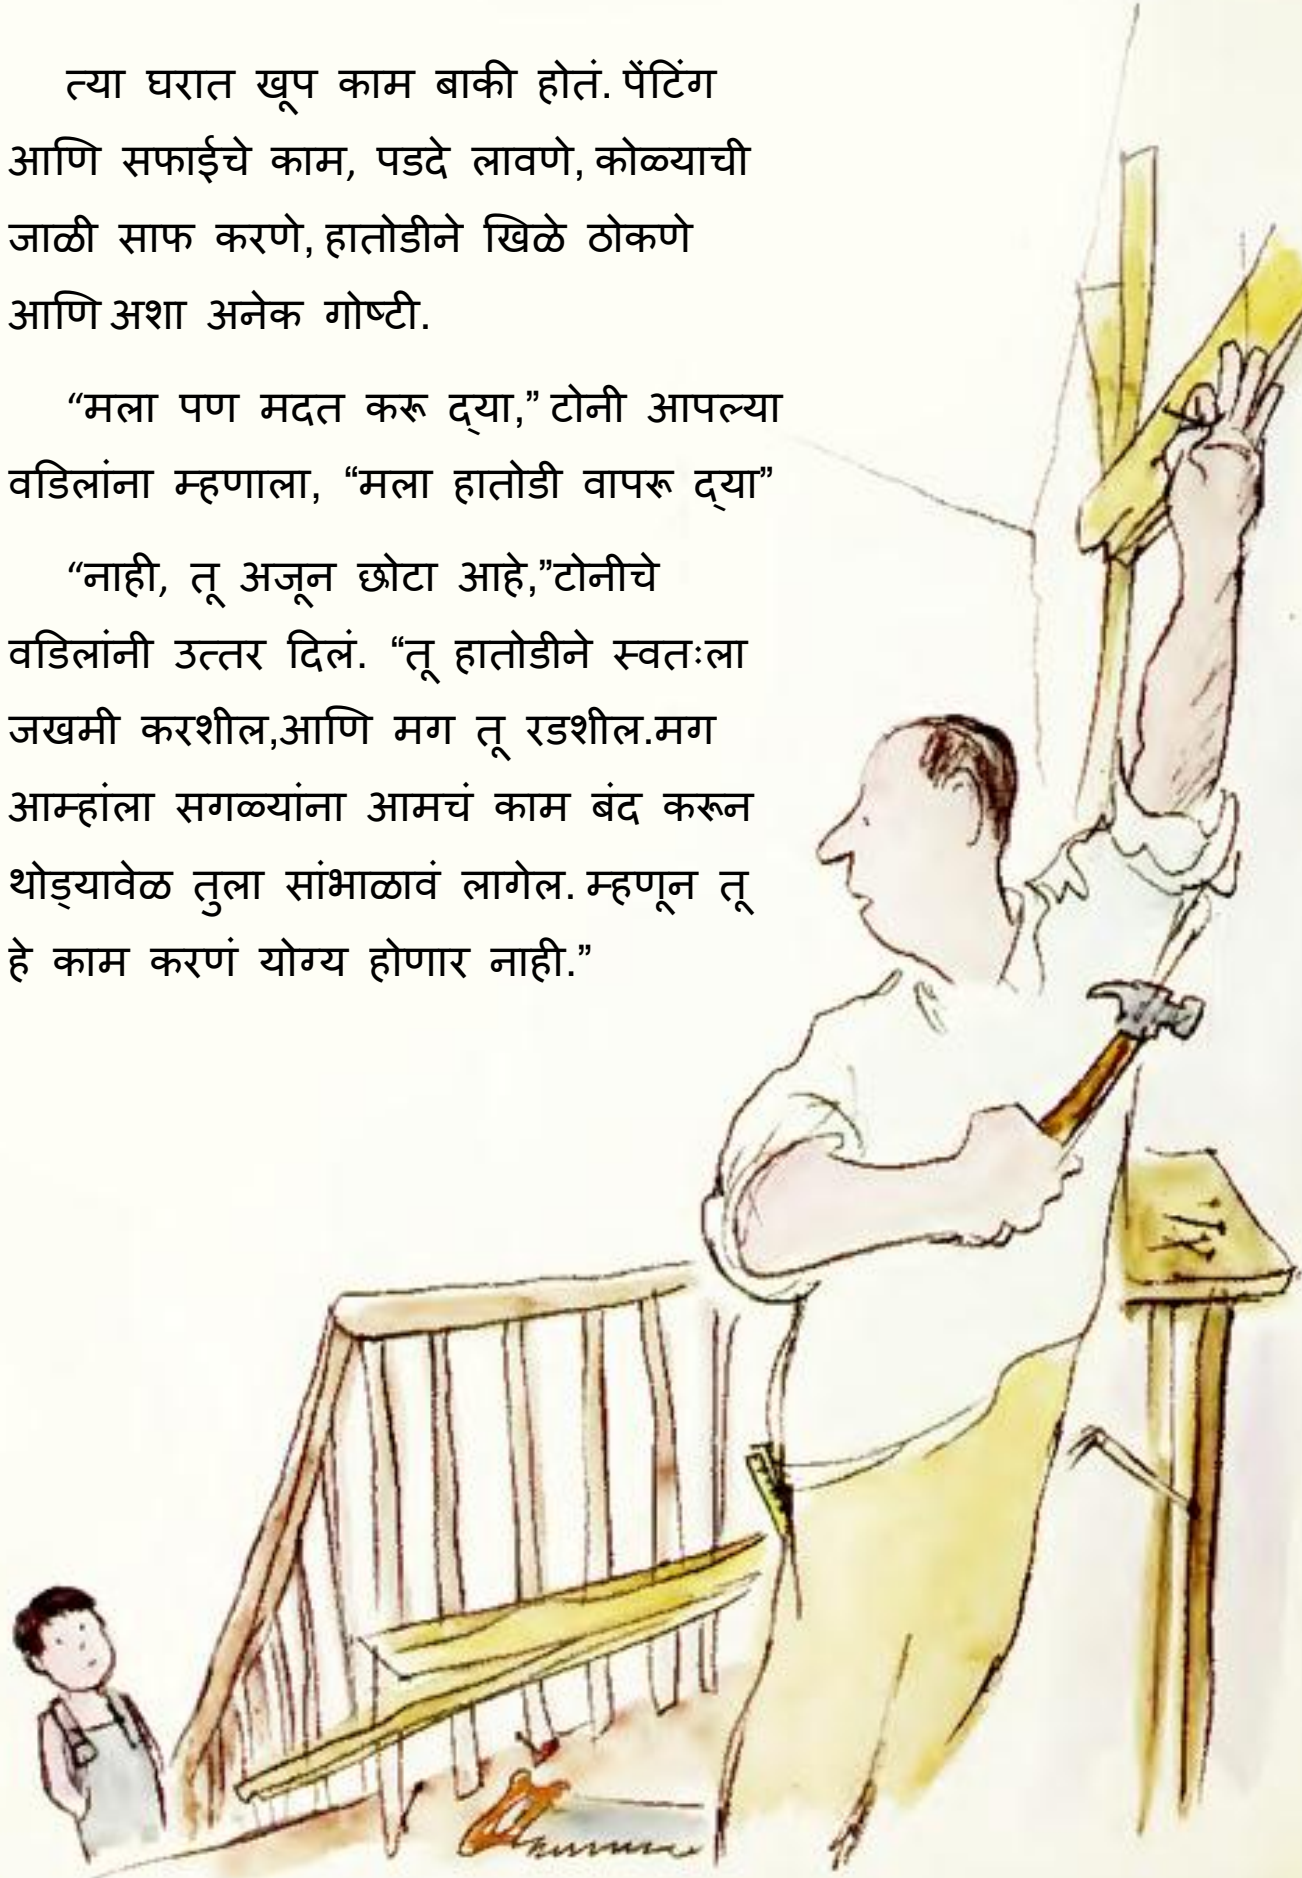 त्या घरात खूप काम बाकी होतं. पेंटिंग
आणि सफाईचे काम, पडदे लावणे, कोळ्याची
जाळी साफ करणे, हातोडीने खिळे ठोकणे
आणि अशा अनेक गोष्टी.
“मला पण मदत करू द्‌या,” टोनी आपल्या
वडिलांना म्हणाला, “मला हातोडी वापरू द्‌या”
“नाही, तू अजून छोटा आहे,”टोनीचे
वडिलांनी उत्तर दिलं. “तू हातोडीने स्वतःला
जखमी करशील,आणि मग तू रडशील.मग
आम्हांला सगळ्यांना आमचं काम बंद करून
थोड्यावेळ तुला सांभाळावं लागेल. म्हणून तू
हे काम करणं योग्य होणार नाही.”